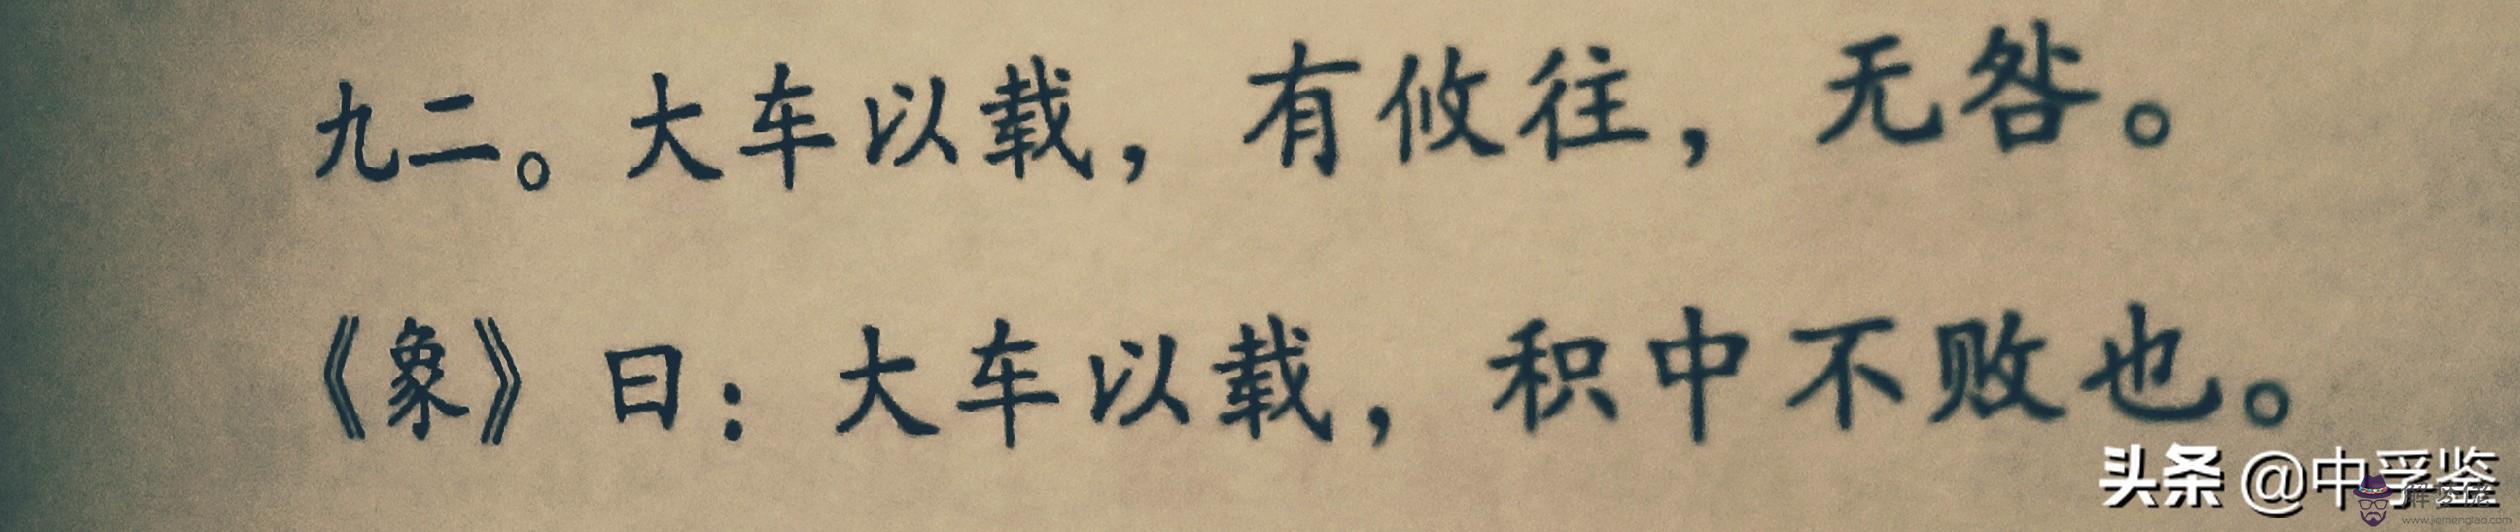 九二。大车以载，有攸往，无咎。
《象》曰：大车以载，积中不败也。
头条 @中孚鉴
www.jiemenglao.com